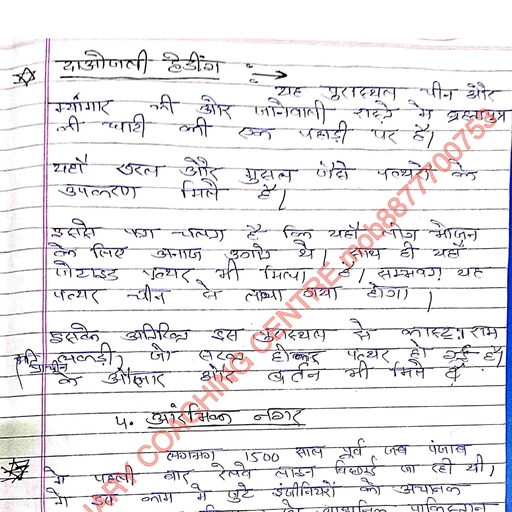 दाओजली हेडींग :→
यह पुरास्थल चीन और
म्यांमार की ओर जानेवाली रास्ते में ब्रह्मपुत्र
की घाटी की एक पहाड़ी पर है।
यहाँ खरल और मुसल जैसे पत्थरों के
उपकरण मिले है।
इससे पता चलता है कि यहाँ लोग भोजन
के लिए अनाज उगाते थे। साथ ही यहाँ
जेडाइड पत्थर भी मिला है। सम्भवतः यह
पत्थर चीन से लाया गया होगा।
इसके अतिरिक्त इस पुरास्थल से काष्टाश्म
अति प्राचीन लकड़ी, जो सख्त होकर पत्थर हो गई है।
के औजार और बर्तन भी मिले हैं
५. आरंभिक नगर
लगभग 1500 साल पूर्व जब पंजाब
मे पहली बार रेलवे लाइन बिछाई जा रही थी,
मे इस काम मे जुटे इंजीनियरों को अचानक
आधुनिक पाकिस्तान
COACHING CENTRE mob8877700753